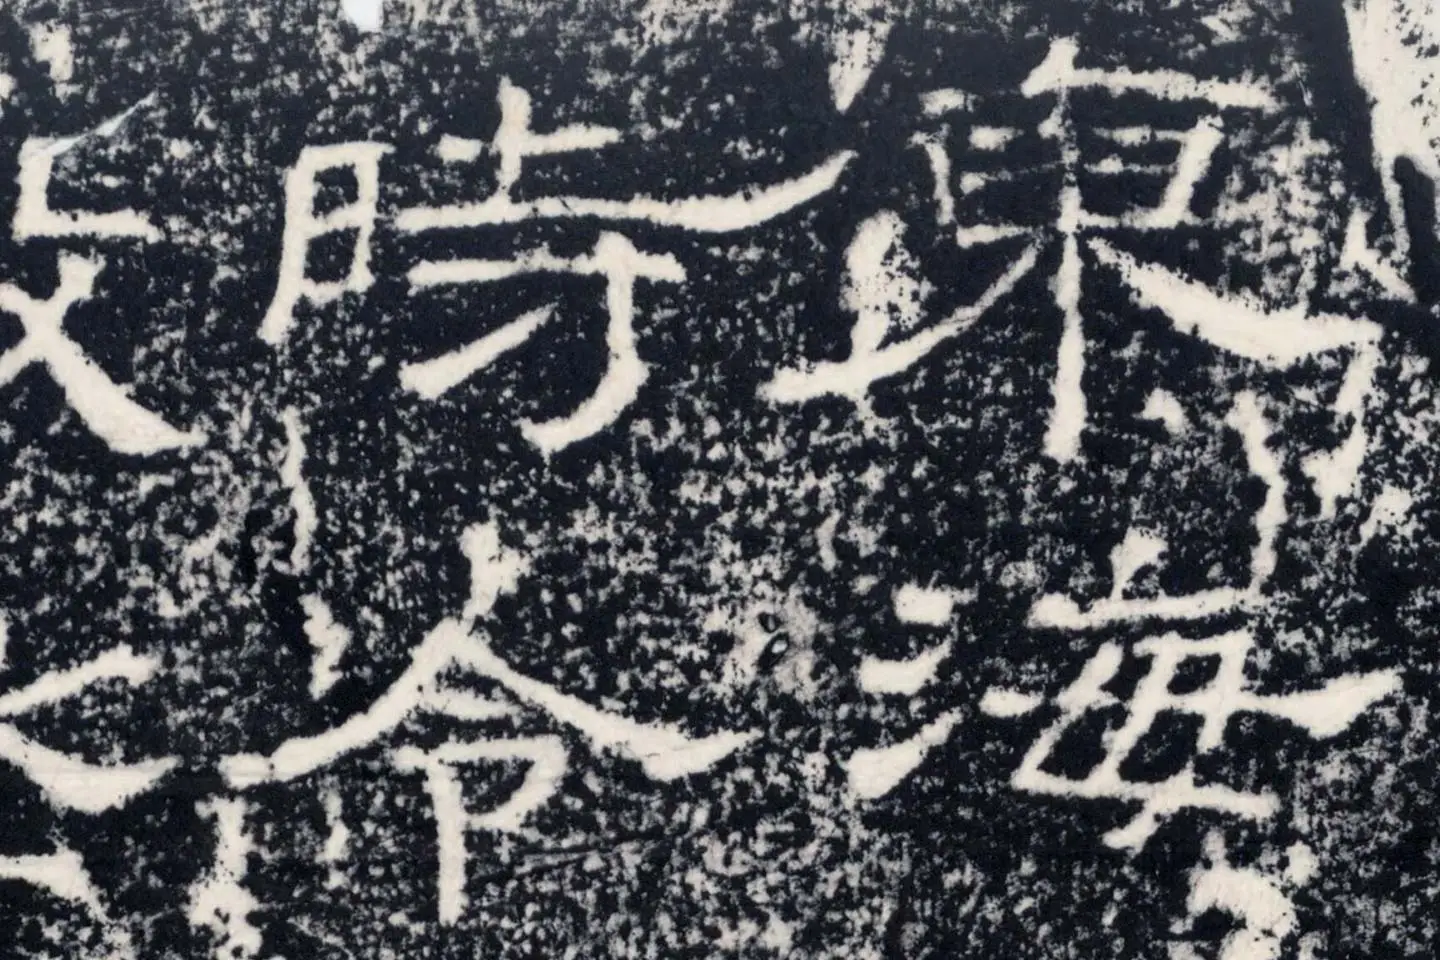 東海
時令